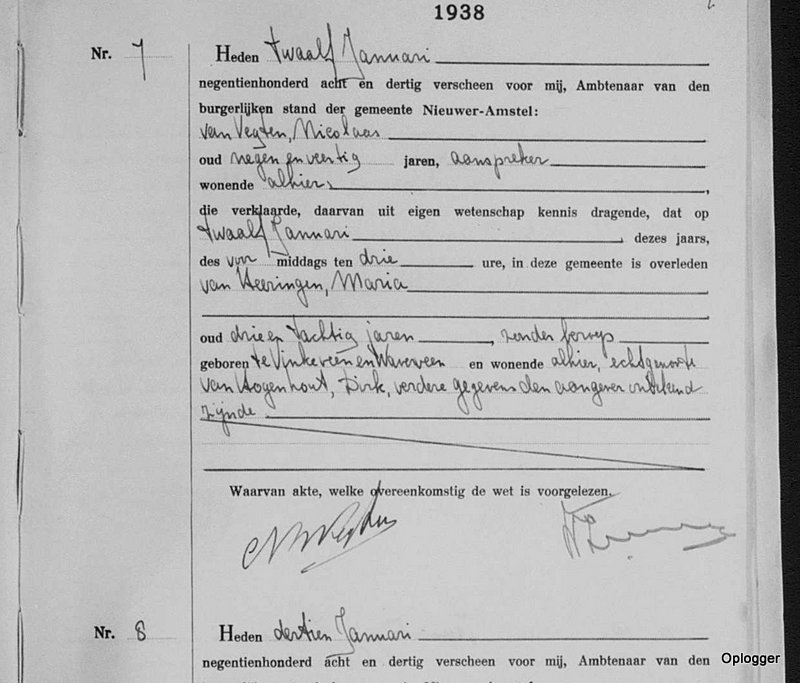 1938
Nr. 7 Heden twaalf Januari
negentienhonderd acht en dertig verscheen voor mij, Ambtenaar van den
burgerlijken stand der gemeente Nieuwer-Amstel:
van Vegten, Nicolaas
oud negen en veertig jaren, aanspreker
wonende alhier
die verklaarde, daarvan uit eigen wetenschap kennis dragende, dat op
twaalf Januari dezes jaars,
des voor middags ten drie ure, in deze gemeente is overleden
van Heeringen, Maria
oud drie en tachtig jaren, zonder beroep
geboren te Vinkeveen en Waverveen en wonende alhier, echtgenoote
van Hogenhout, Dirk, verdere gegevens den aangever onbekend
zijnde.
Waarvan akte, welke overeenkomstig de wet is voorgelezen.
Nr. 8 Heden dertien Januari
negentienhonderd acht en dertig verscheen voor mij, Ambtenaar van den
Oplogger